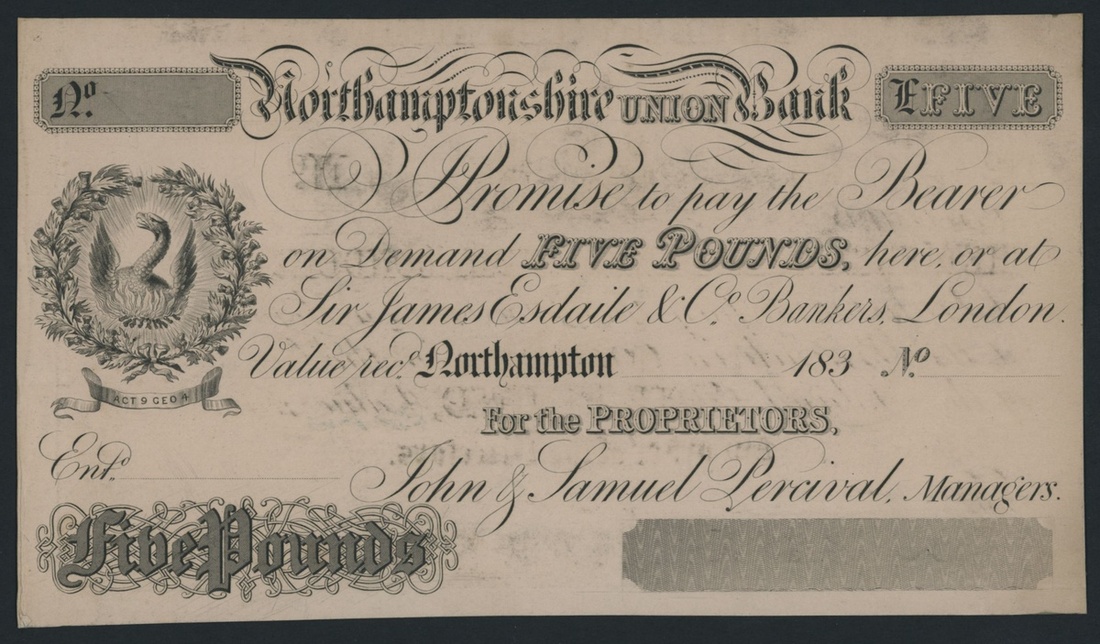 No
Northamptonshire UNION Bank
£FIVE
I Promise to pay the Bearer
on Demand FIVE POUNDS, here, or at
Sir James Esdaile & Co. Bankers, London.
Value recd. Northampton 183 No.
ACT 9 GEO 4
For the PROPRIETORS,
Entd.
John & Samuel Percival, Managers.
Five Pounds